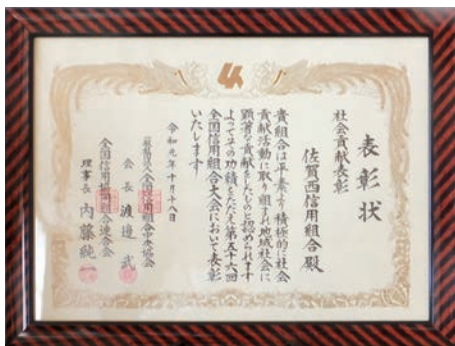 表彰状
社会貢献表彰
佐賀西信用組合殿
貴組合は平素より積極的に社会
貢献活動に取り組まれ地域社会に
顕著な貢献をしたものと認められます
よってその功績をたたえ第五十六回
全国信用組合大会において表彰
いたします
令和元年十月十八日
一般社団法人全国信用組合中央協会
会長 渡邉 武
全国信用協同組合連合会
理事長 内藤純一